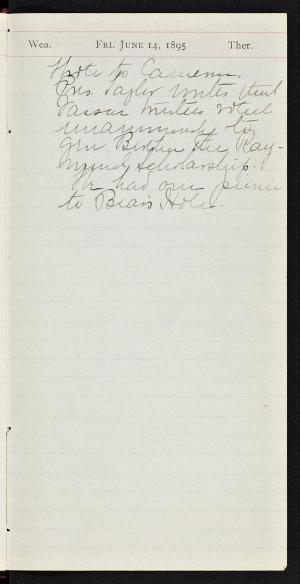 Wea. FRI. JUNE 14, 1895 Ther.
Wrote to Cameron.
Mrs. Taylor writes that
Vassar trustees voted
unanimously to
give Bertha the Ray-
mond scholarship.
We had our picnic
to Bear's Hole.